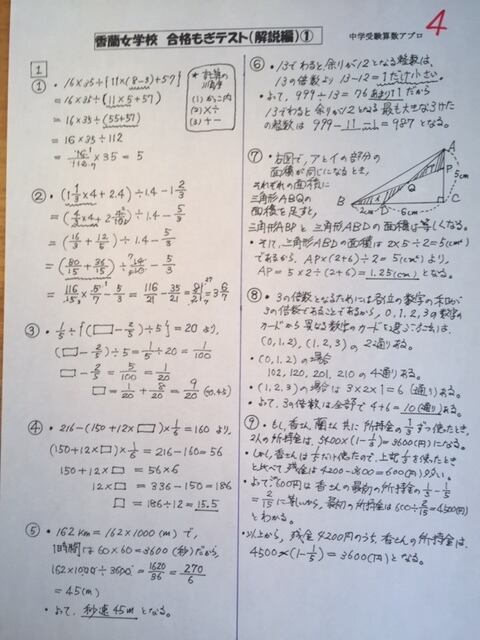 香蘭女学校 合格もぎテスト(解説編)①
中学受験算数アプロ
4
1
① ・16×35÷{11×(8-3)+57}
=16×35÷(11×5+57)
=16×35÷(55+57)
=16×35÷112
=16/112×35=5
*計算の順序
(1)かっこ内
(2)×÷
(3)+-
② ・(1 1/3×4+2.4)÷1.4-1 2/3
=(4/3×4+2 4/10)÷1.4-5/3
=(16/3+12/5)÷1.4-5/3
=(80/15+36/15)÷14/10-5/3
=116/15×5/7-5/3=116/21-35/21=81/21=3 6/7
③ ・1/5÷{(□-2/5)÷5}=20より、
(□-2/5)÷5=1/5÷20=1/100
□-2/5=5/100=1/20
□=1/20+8/20=9/20(0.45)
④ ・216-(150+12×□)×1/6=160より、
(150+12×□)×1/6=216-160=56
150+12×□=56×6
12×□=336-150=186
□=186÷12=15.5
⑤ ・162km=162×1000(m)で、
1時間は60×60=3600(秒)だから、
162×1000÷3600=1620/36=270/6
=45(m)
・よって、秒速45mとなる。
⑥ ・13でわると余りが12となる整数は、
13の倍数より13-12=1だけ小さい。
・よって、999÷13=76あまり11だから
13でわると余りが12となる最大な3けた
の整数は999-11-1=987となる。
⑦ ・右図で、アとイの部分の
面積が同じになるとき、
それぞれの面積に
三角形ABQの
面積を足すと、
三角形ABPと三角形ABDの面積は等しくなる。
A
P
5cm
Q
B
2cm
D
6cm
C
・そして、三角形ABDの面積は2×5÷2=5(cm²)
であるから、AP×(2+6)÷2=5(cm²)より、
AP=5×2÷(2+6)=1.25(cm)となる。
⑧ ・3の倍数となるためには各位の数字の和が
3の倍数であることであるから、0,1,2,3の数字の
カードから異なる数字のカードを選ぶことは、
(0,1,2),(1,2,3)の2通りある。
・(0,1,2)の場合
102,120,201,210の4通りある。
・(1,2,3)の場合は3×2×1=6(通り)ある。
・よって、3の倍数は全部で4+6=10(通り)ある。
⑨ ・もし、香さん、蘭さん共に所持金の1/3ずつ使ったとき、
2人の所持金は、5400×(1-1/3)=3600(円)になる。
・しかし、香さんは1/5だけ使たので、上記1/3を使ったとき
と比べて、残金は4200-3600=600(円)多い。
・よって、600円は香さんの最初の所持金の1/3-1/5
=2/15に等しいから、最初の所持金は600÷2/15=4500(円)
とわかる。
・以上から、残金4200円のうち、香さんの所持金は、
4500×(1-1/5)=3600(円)となる。